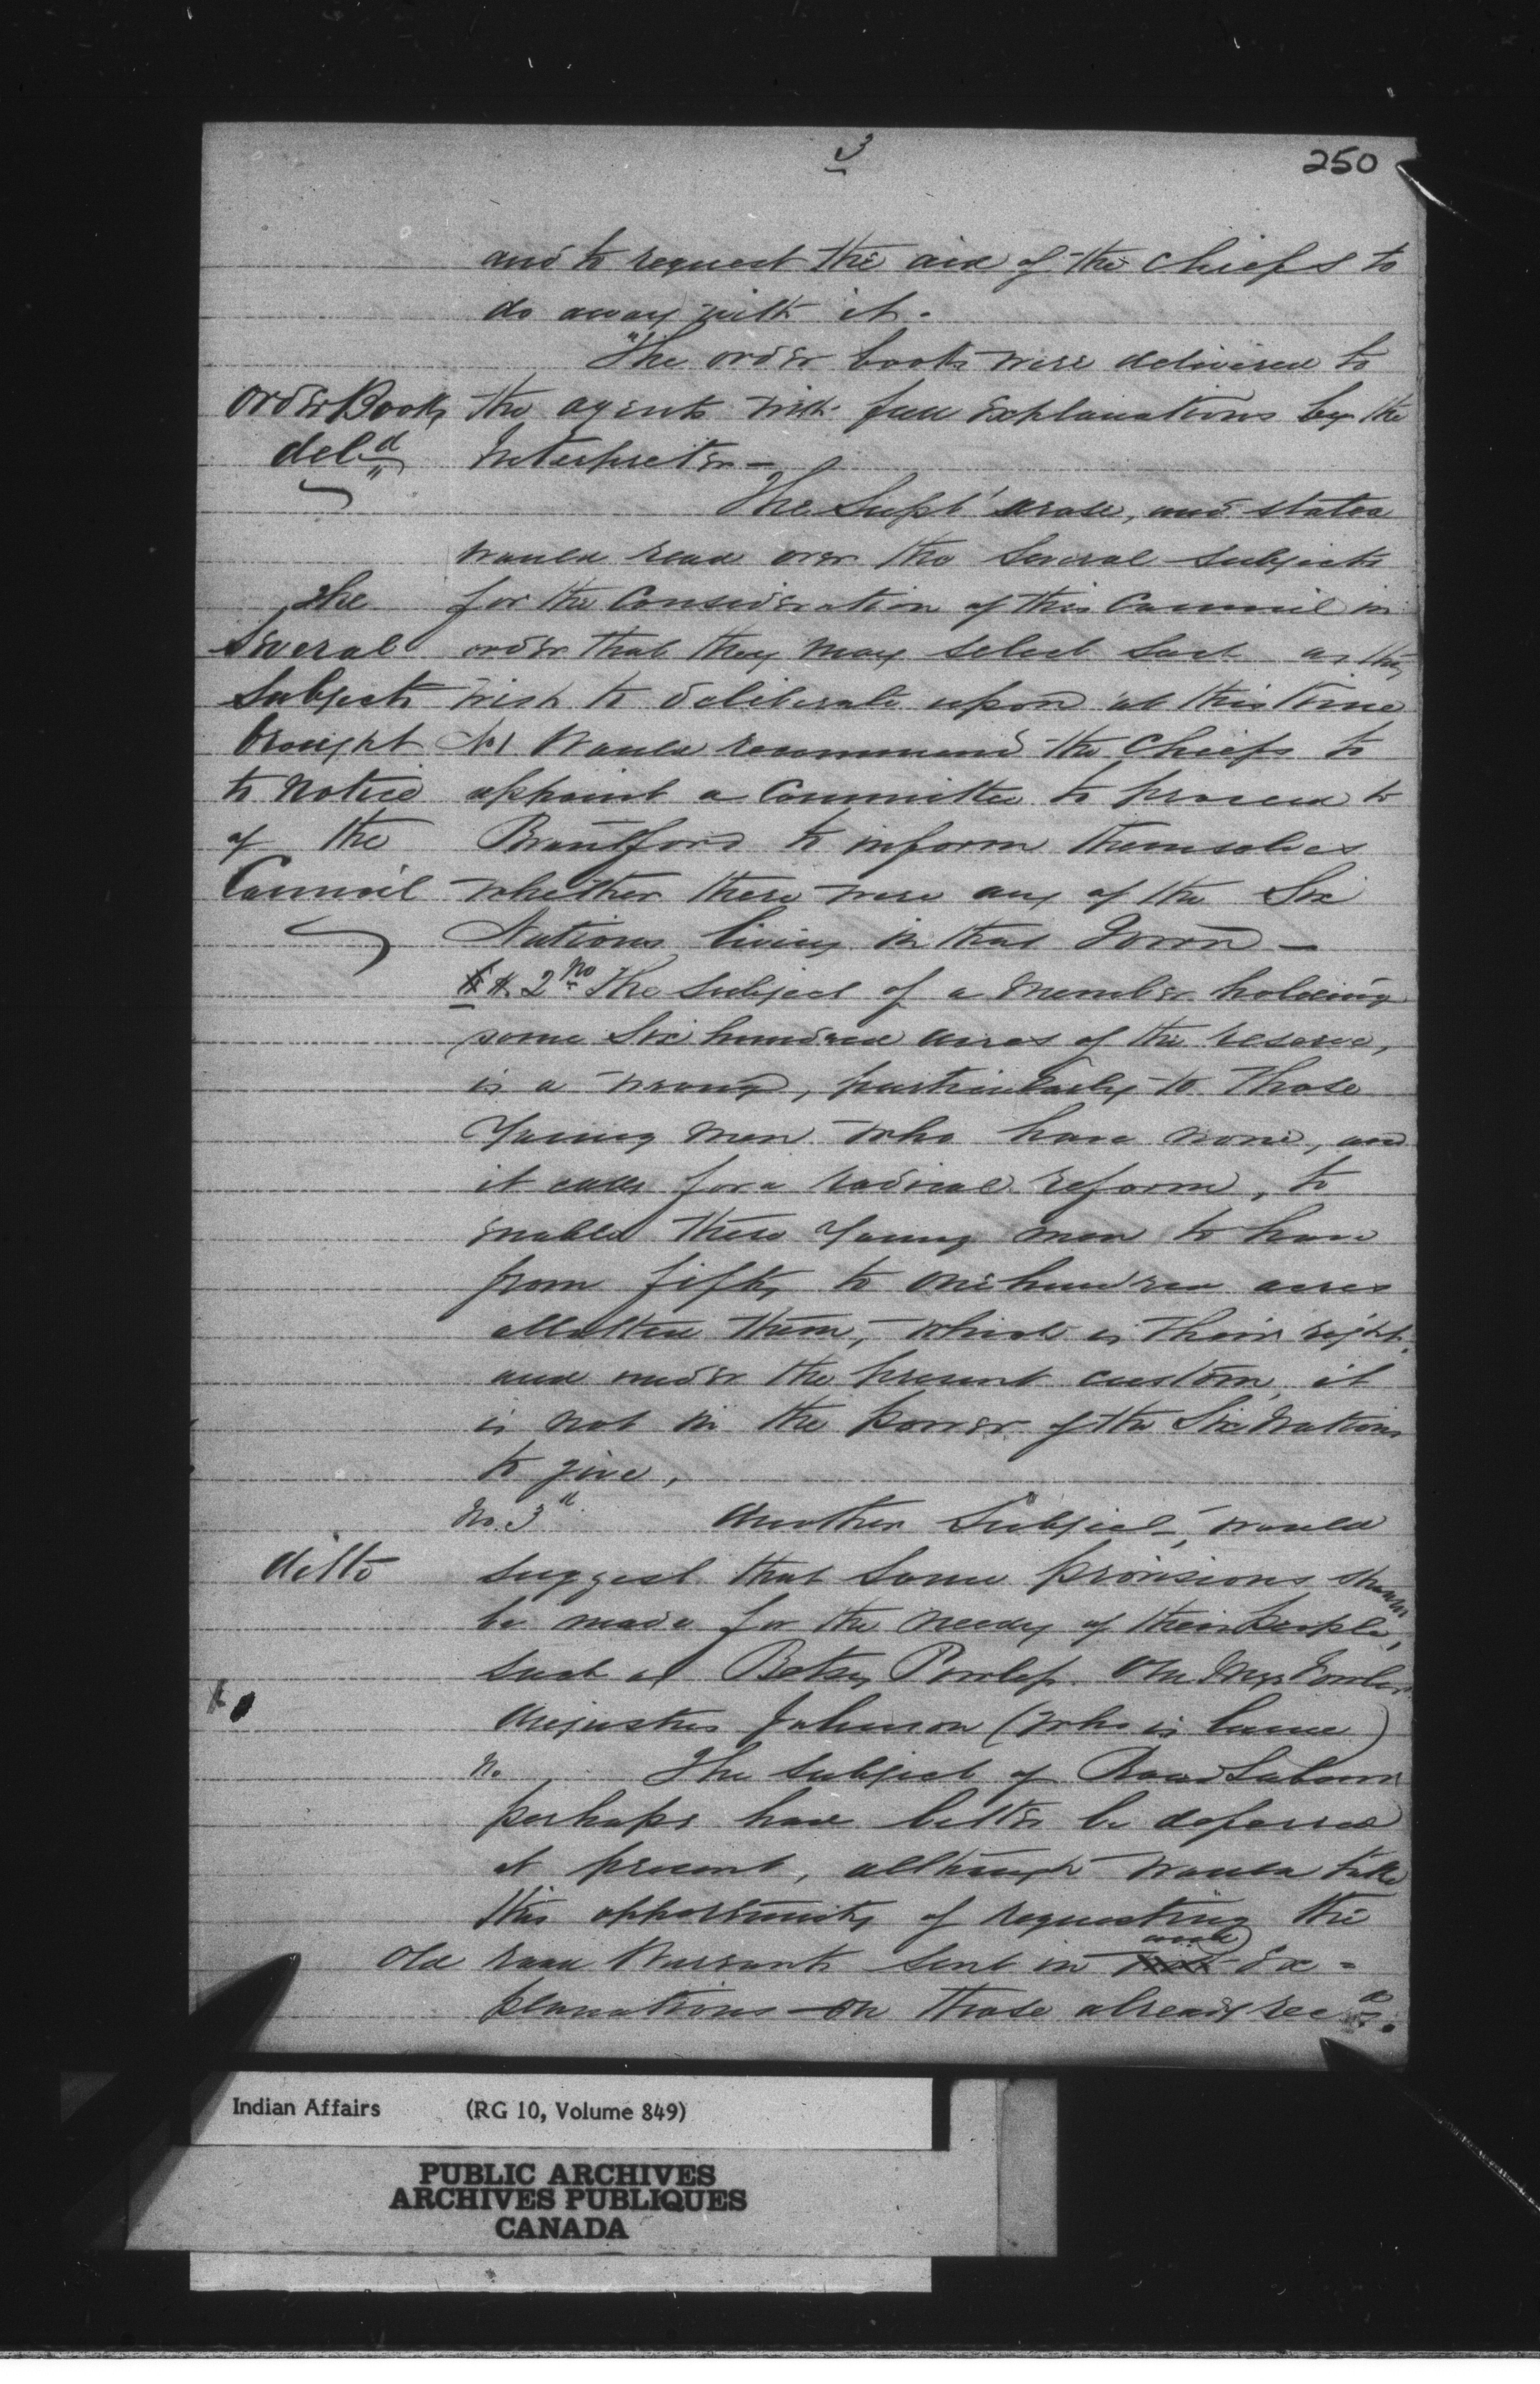 3
250
and to request the aid of the Chiefs to
do away with it.
"The order books were delivered to
Order Books the agents with full explanations by the
del.d Interpreter —
The Supt arose, and stated
would read over the several subjects
The for the Consideration of this Council in
Several order that they may select such as they
Subjects wish to deliberate upon at this time
brought No 1 Would recommend the Chiefs to
to notice appoint a Committee to proceed to
of the Brantford to inform themselves
Council whether there were any of the Six
Nations living in that Town —
2nd The subject of a Member holding
some Six hundred acres of the reserve,
is a wrong, particularly to those
Young men who have none, and
it calls for a radical reform, to
enable these Young men to have
from fifty to one hundred acres
allotted them, which is their right,
and under the present custom, it
is not in the power of the Six Nations
to give,
No. 3d Another Subject, would
ditto suggest that some provisions should
be made for the needy of their people,
such as Betsy Powless Old Mrs
Augustus Johnson (who is lame)
No The subject of Road Labour
perhaps had better be deferred
at present, although would take
this opportunity of requesting the
Old road Warrants sent in and Ex-
planations on those already recd.
Indian Affairs (RG 10, Volume 849)
PUBLIC ARCHIVES
ARCHIVES PUBLIQUES
CANADA